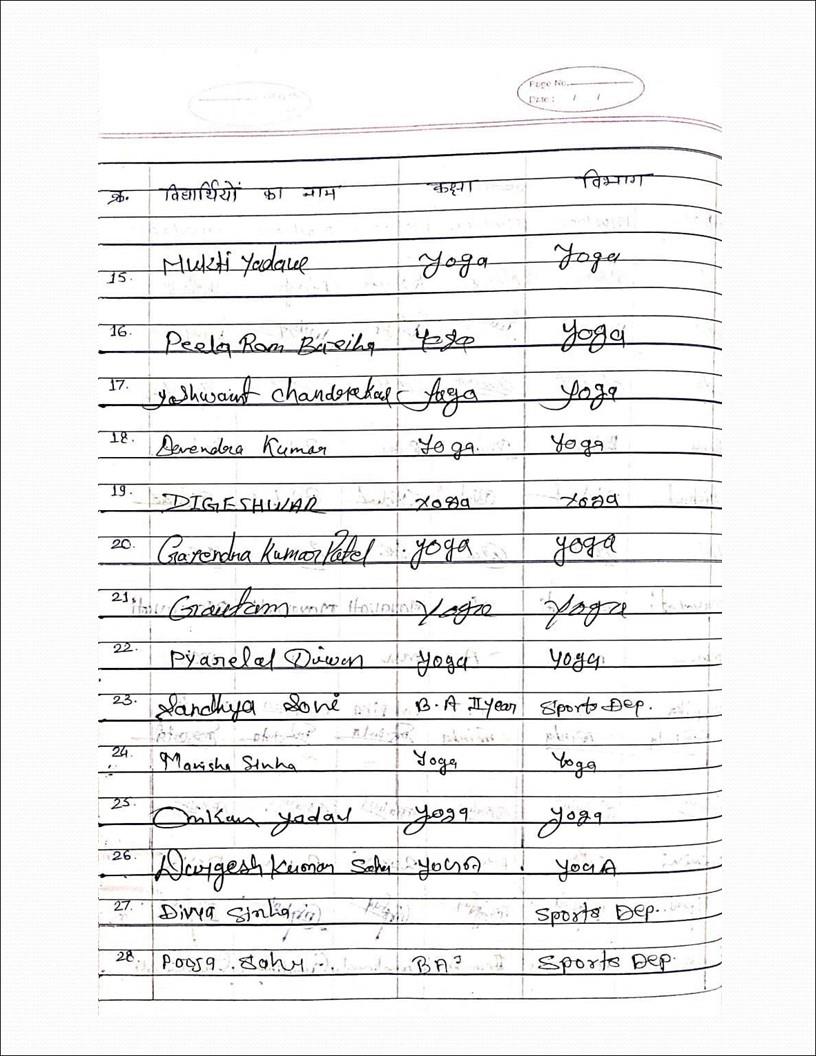 Page No.
Date : / /
क्र. विद्यार्थियों का नाम कक्षा विभाग
15. Mukti Yadave Yoga Yoga
16. Peela Ram Bareiha Yoga Yoga
17. Yashwant Chanderakar Yoga Yoga
18. Devendra Kumar Yoga. Yoga
19. DIGESHWAR Yoga Yoga
20. Garendra Kumar Patel Yoga Yoga
21. Grautam Yoga Yoga
22. Pyarelal Diwan Yoga Yoga
23. Sandhya Soni B.A II year Sports Dep.
24. Manisha Sinha Yoga Yoga
25. Omkar Yadav Yoga Yoga
26. Durgesh Kumar Sahu YOGA YOGA
27. Divya Sinha Sports Dep.
28. Pooja Sahu BA Sports Dep.